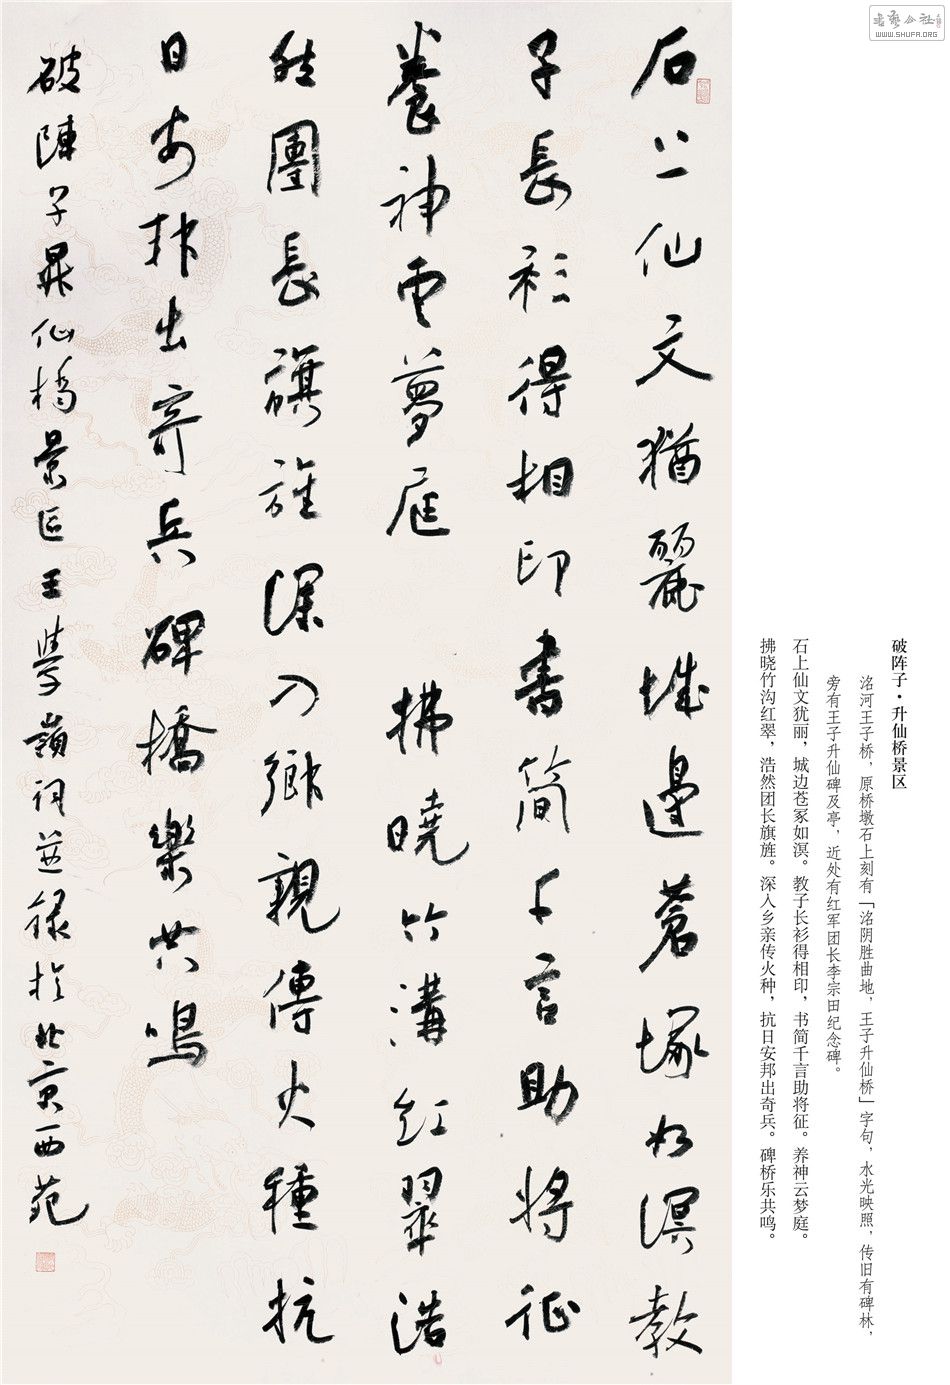 石上仙文猶麗城邊蒼塚如溟教
子長衫得相印書简千言助將征
養神雲夢庭 拂曉竹溝紅翠浩
然團長旗旌深入鄉親傳火種抗
日安邦出奇兵碑橋樂共鳴
破陣子昇仙橋景区王學嶺詞並録於北京西苑
書藝公社
WWW.SHUFA.ORG
破阵子·升仙桥景区
洺河王子桥，原桥墩石上刻有「洺阴胜曲地，王子升仙桥」字句，水光映照，传旧有碑林，
旁有王子升仙碑及亭，近处有红军团长李宗田纪念碑。
石上仙文犹丽，城边苍冢如溟。教子长衫得相印，书简千言助将征。养神云梦庭。
拂晓竹沟红翠，浩然团长旗旌。深入乡亲传火种，抗日安邦出奇兵。碑桥乐共鸣。